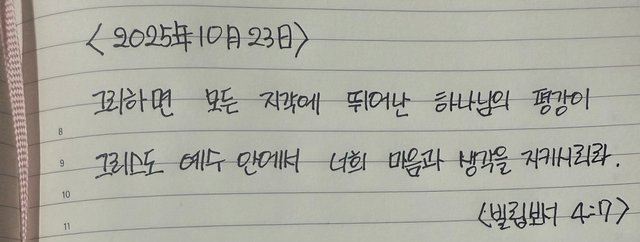 <2025年10月23日>
그리하면 모든 지각에 뛰어난 하나님의 평강이
8
그리스도 예수 안에서 너희 마음과 생각을 지키시리라.
9
10
<빌립보서 4:7>
11